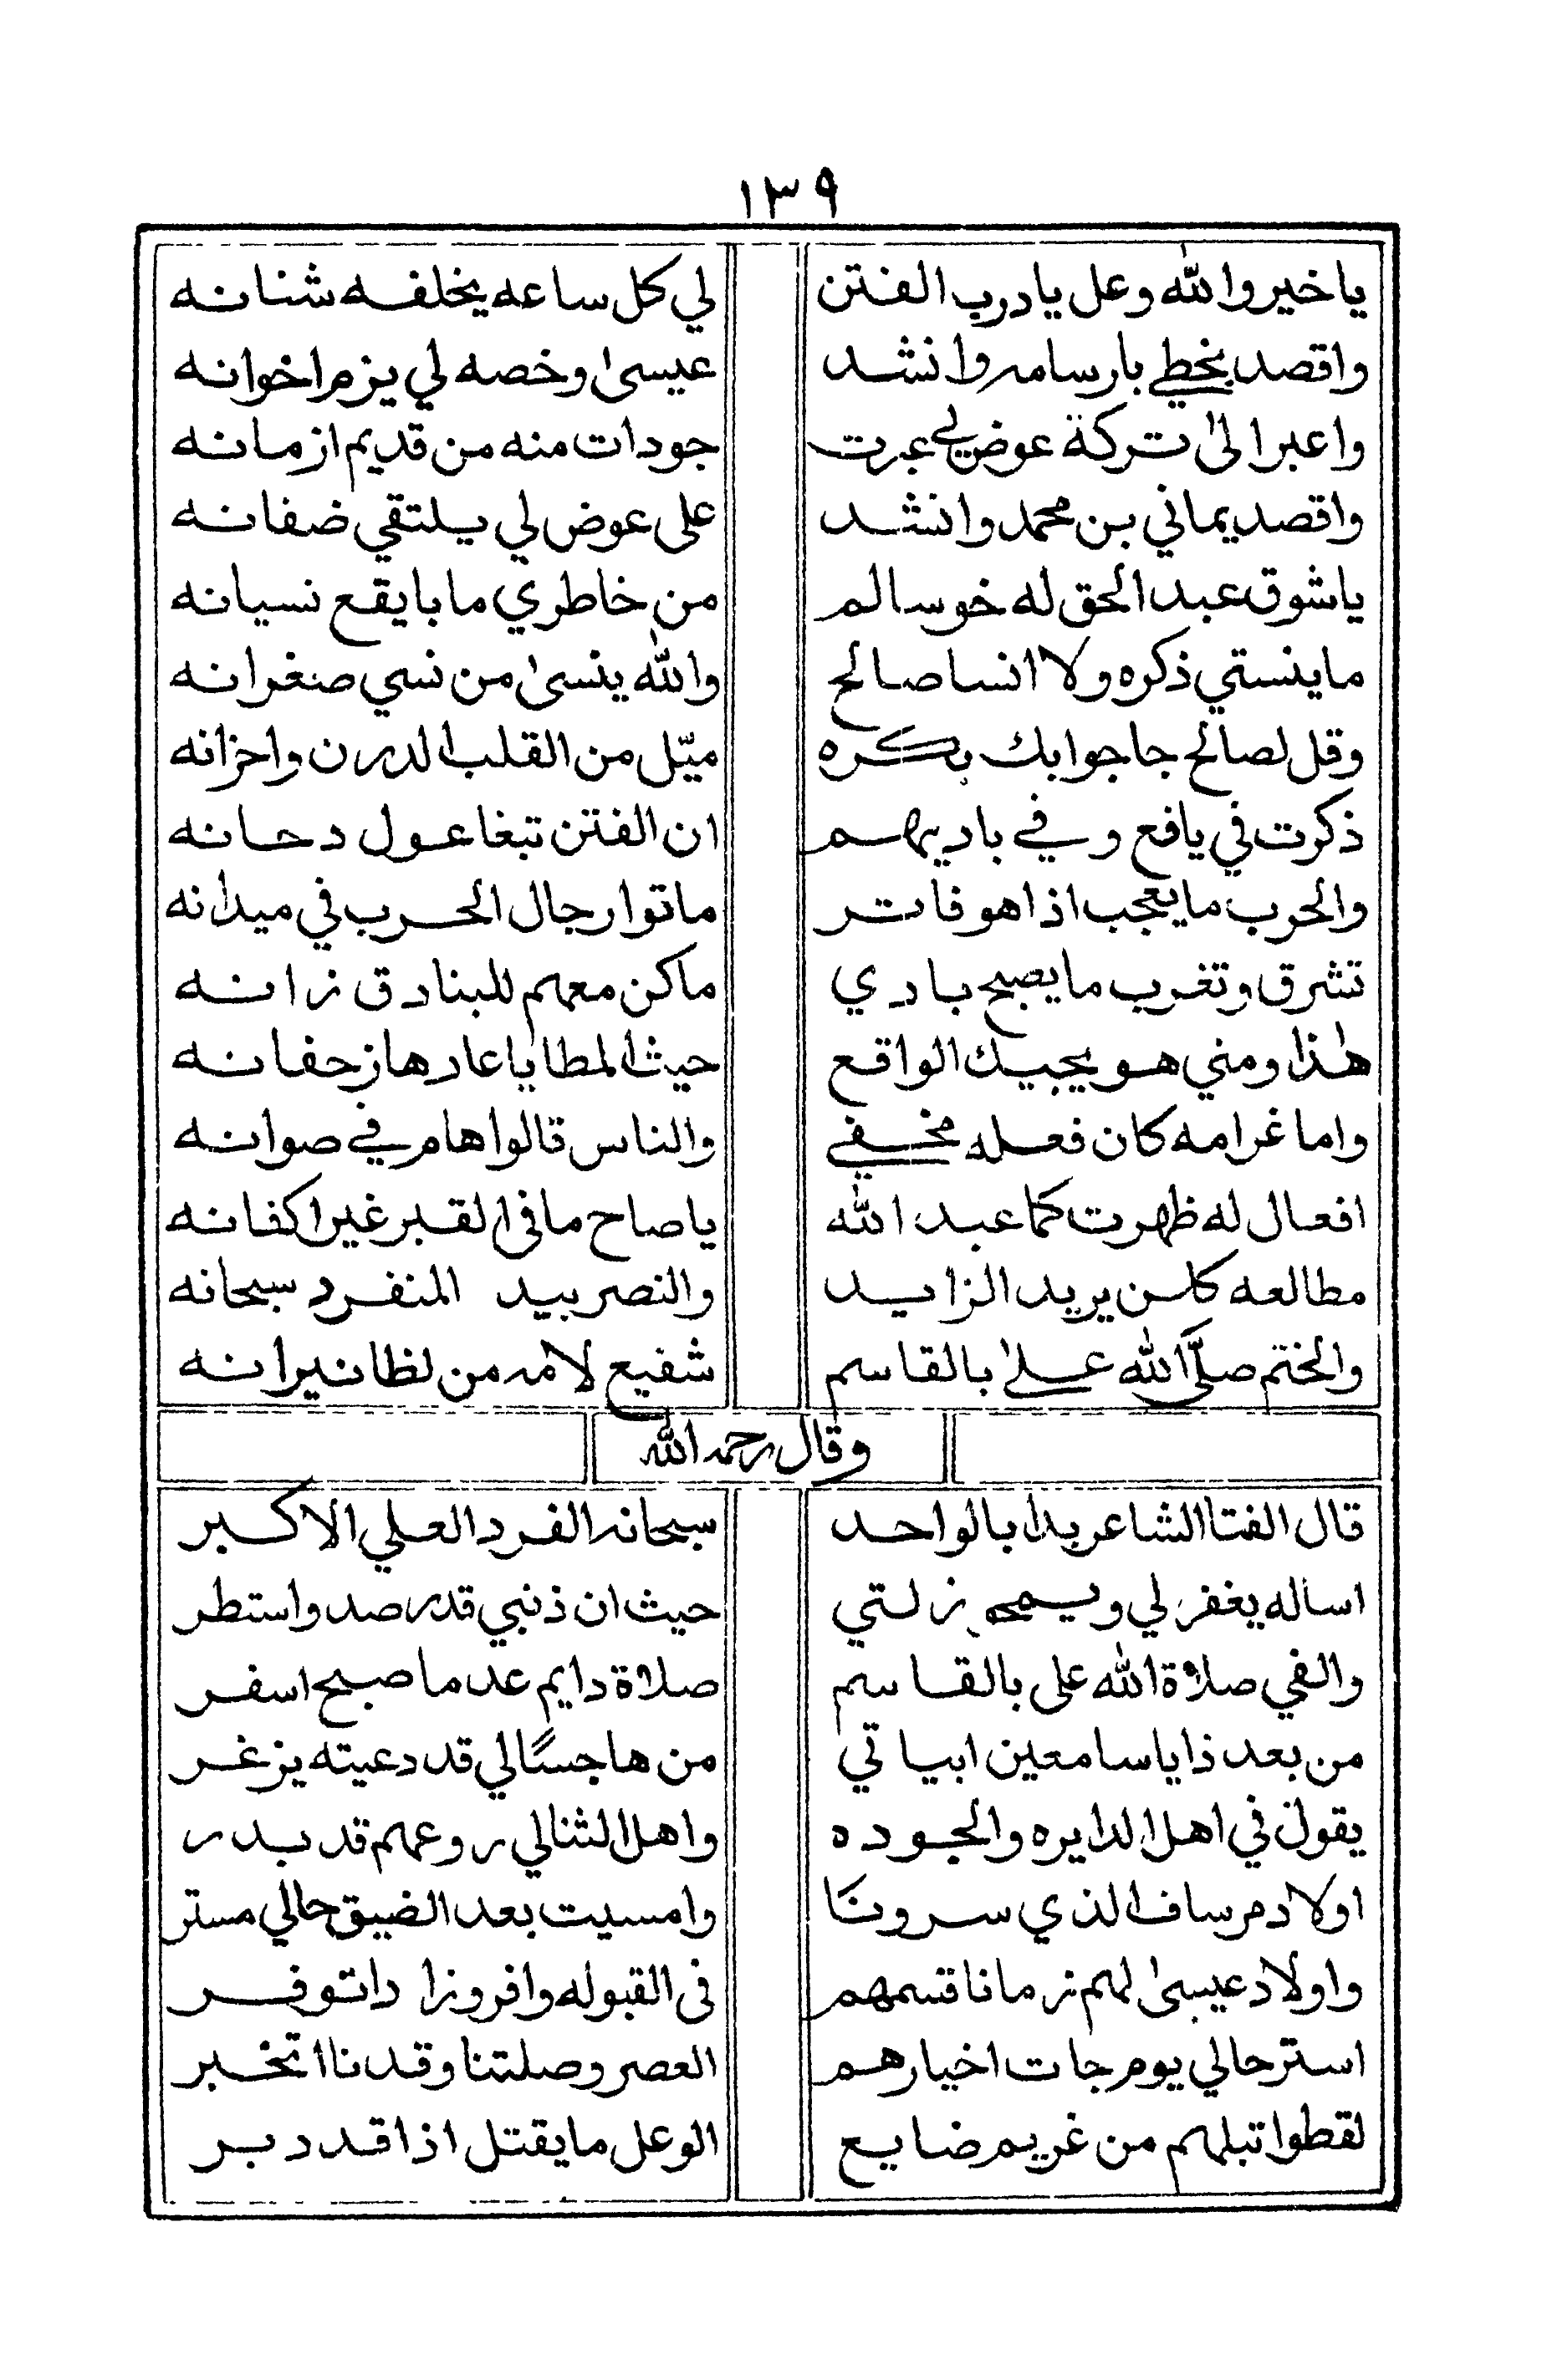 ١٣٩
ياخير والله وعل يا درب الفتن لي كل ساعه يخلفه شنانه
واقصد بخطي بارسامه وانشد عيسىٰ وخصه لي يزم اخوانه
واعبر الىٰ تركة عوض لي عبرت جودات منه من قديم ازمانه
واقصد يماني بن محمد وانشد على عوض لي يلتقي ضفانه
ياشوق عبد الحق له خو سالم من خاطري ما با يقع نسيانه
ما ينستي ذكره ولا انسا صالح والله ينسىٰ من نسي صغرانه
وقل لصالح جا جوابك بكره ميّل من القلب الدرن واحزانه
ذكرت في يافع وفي باديهم ان الفتن تبغا عول دحانه
والحرب ما يعجب اذا هو فاتر ماتوا رجال الحرب في ميدانه
تشرق وتغرب ما يصبح بادي ماكن معهم للبنادق زانه
هٰذا ومني هو يجيبك الواقع حيث المطايا عادها زحفانه
واما غرامه كان فعله مخفي والناس قالوا هام في صوانه
افعال له ظهرت كما عبد الله ياصاح ما في القبر غير اكفانه
مطالعه كلن يريد الزايد والنصر بيد المنفرد سبحانه
والختم صلّى الله علىٰ بالقاسم شفيع لامه من لظا نيرانه
وقال رحمه الله
قال الفتا الشاعر بدا بالواحد سبحانه الفرد العلي الاكبر
اساله يغفر لي ويمحه زلتي حيث ان ذنبي قد رصد واستطر
والفي صلاة الله على بالقاسم صلاة دايم عد ما صبح اسفر
من بعد ذا ياسامعين ابياتي من هاجسًا لي قد دعيته يزغر
يقول في اهل الدايره والجوده واهل الثنا لي روعهم قد بدر
اولاد مرساف الذي سرونا وامسيت بعد الضيق حالي مستر
واولاد عيسىٰ لهم زمانا قسمهم في القبوله وافر وزا داتوفر
استر حالي يوم جات اخيارهم العصر وصلتنا وقدنا اتخبر
لقطوا تبلهم من غريم ضايع الوعل ما يقتل اذا قد دبر